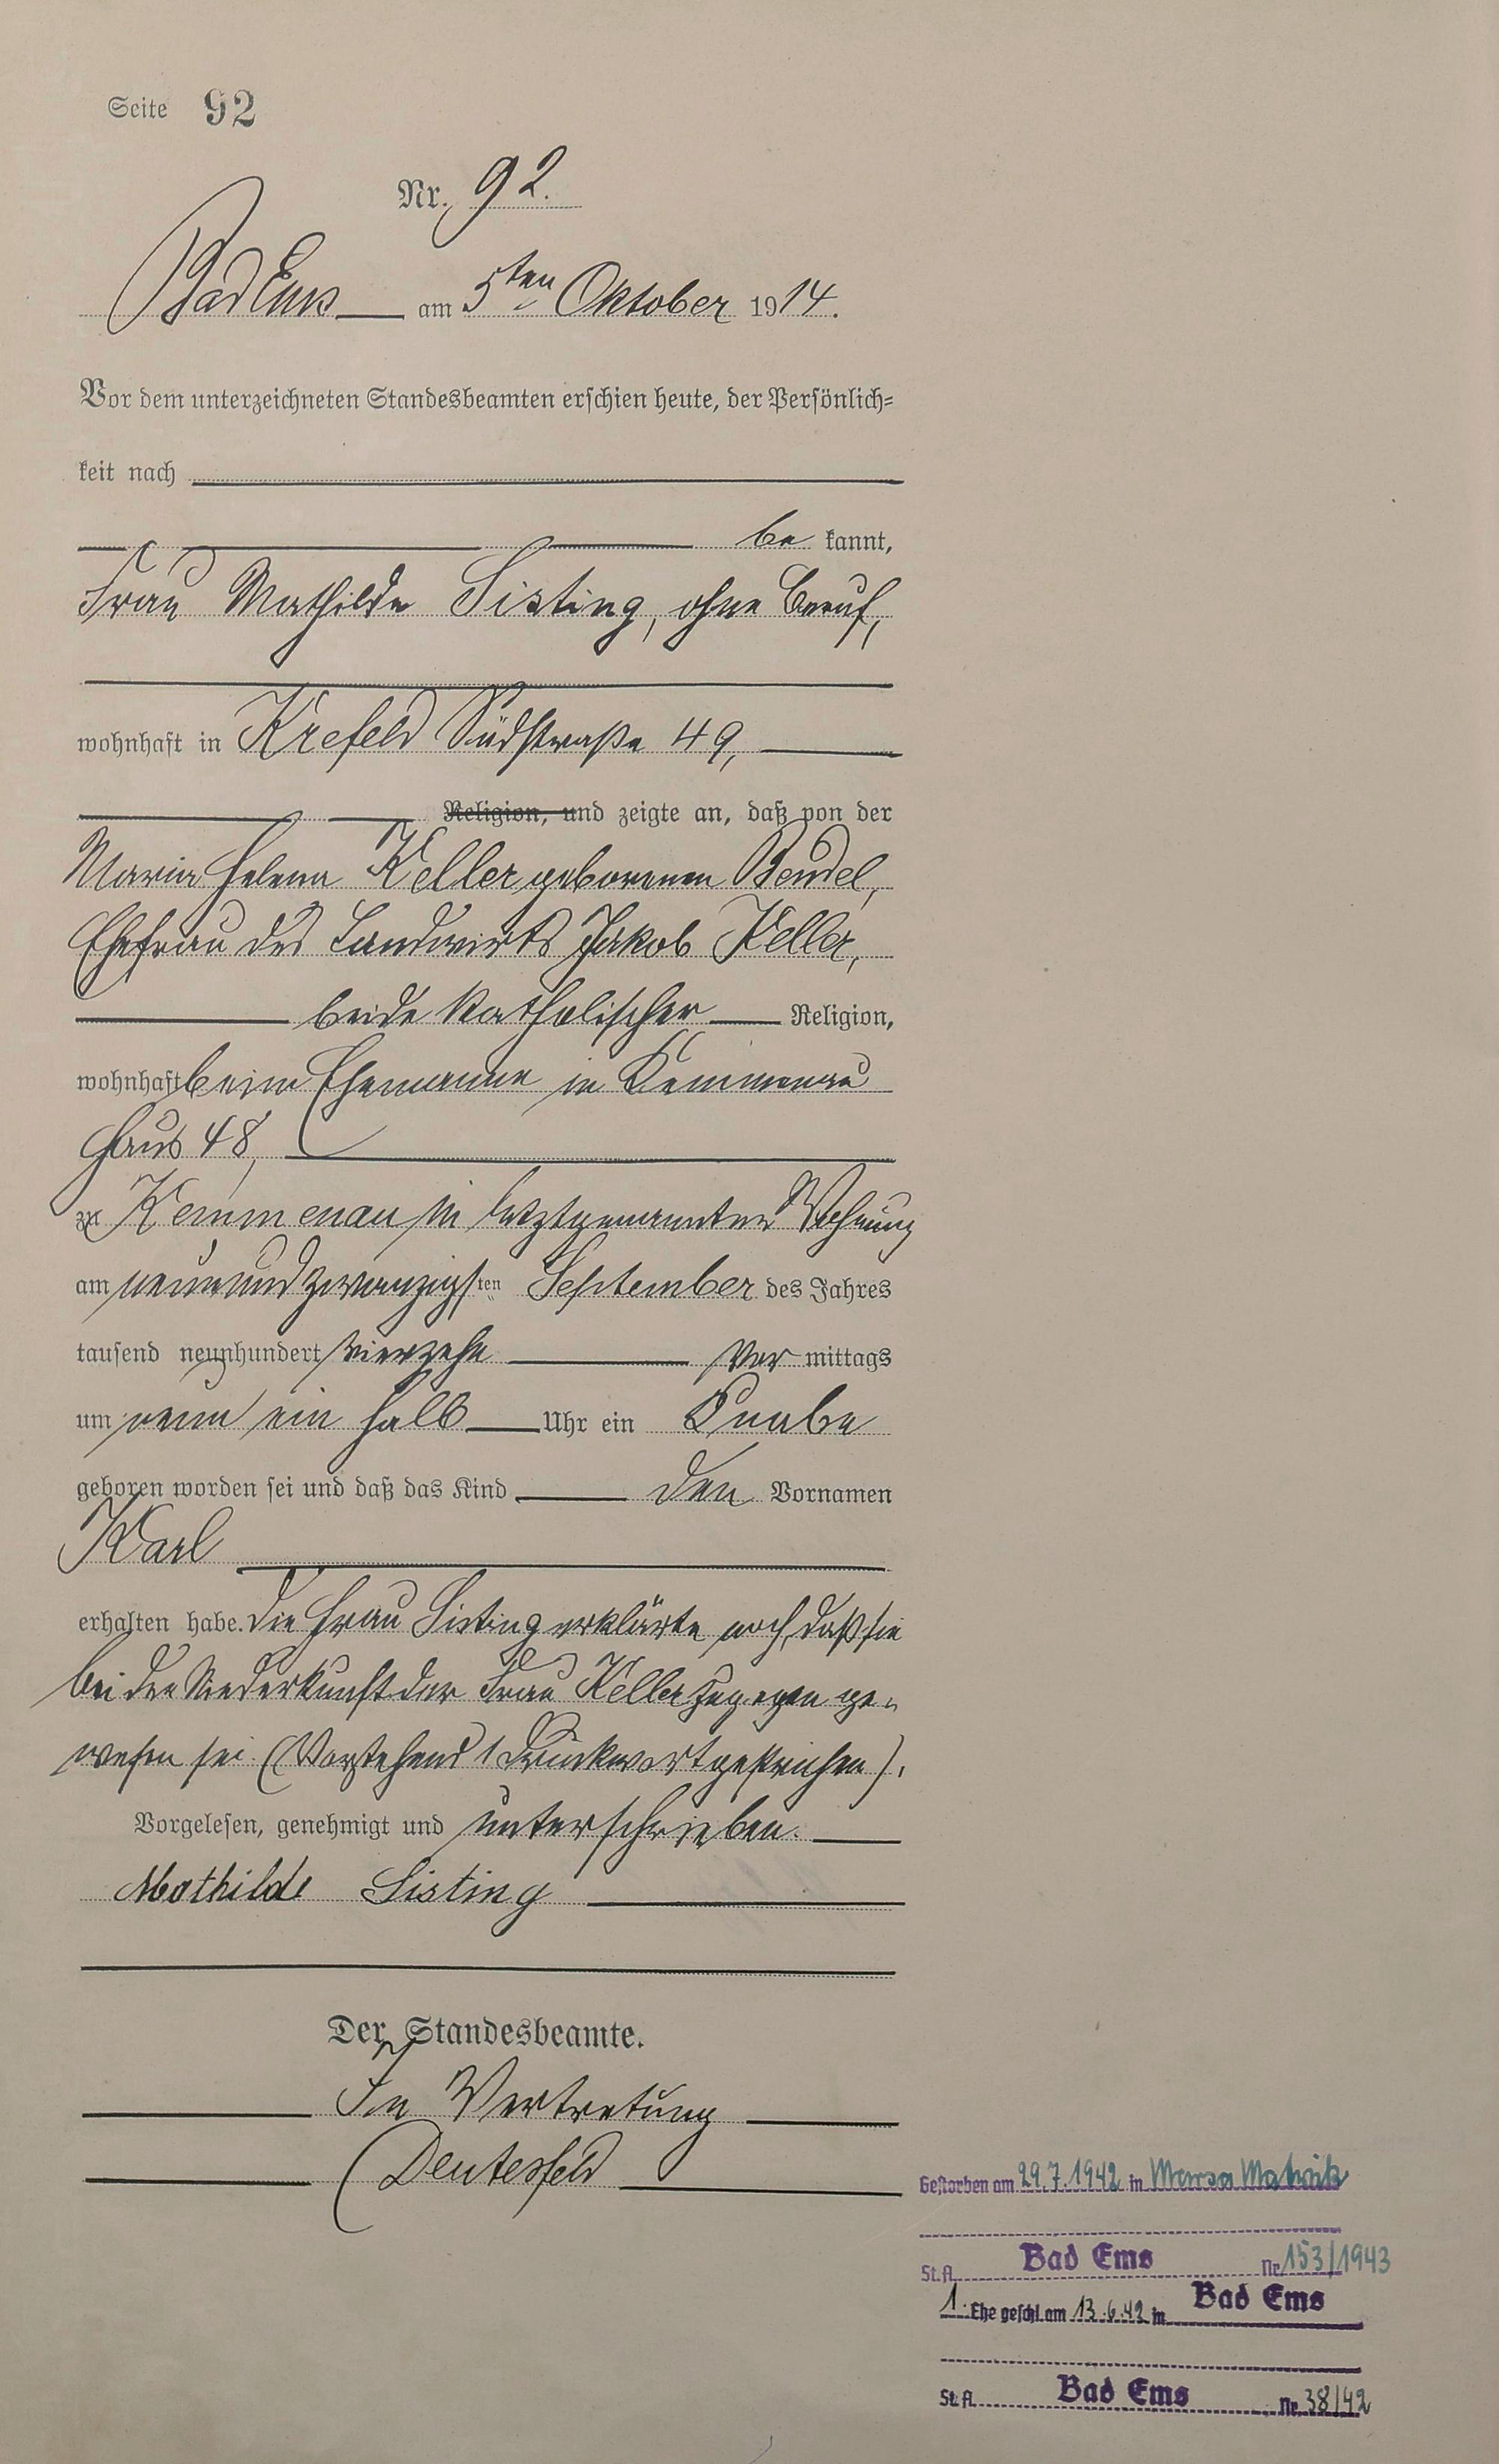 Seite 92
Nr. 92.
Bad Ems am 5ten Oktober 1914.
Vor dem unterzeichneten Standesbeamten erschien heute, der Persönlich-
keit nach
be kannt,
Frau Mathilde Sisting, ohne Beruf,
wohnhaft in Krefeld Südstraße 49,
Religion, und zeigte an, daß von der
Maria Helena Keller geborenen Beudel,
Ehefrau des Landwirts Jakob Keller,
beide katholischer Religion,
wohnhaft beim Ehemanne in Kemmenau
Haus 48,
zu Kemmenau in letztgenannter Wohnung
am neunundzwanzigsten September des Jahres
tausend neunhundert vierzehn Vor mittags
um neun ein halb Uhr ein Knabe
geboren worden sei und daß das Kind den Vornamen
Karl
erhalten habe. Die Frau Sisting erklärte noch, daß sie
bei der Niederkunft der Frau Keller zugegen ge-
wesen sei. (Vorstehend 1 Druckwort gestrichen).
Vorgelesen, genehmigt und unterschrieben.
Mathilde Sisting
Der Standesbeamte.
In Vertretung
Deutesfeld
Gestorben am 29.7.1942 in Marsa Matruk
St.A. Bad Ems Nr. 153/1943
1. Ehe geschl. am 13.6.42 in Bad Ems
St.A. Bad Ems Nr. 38/42